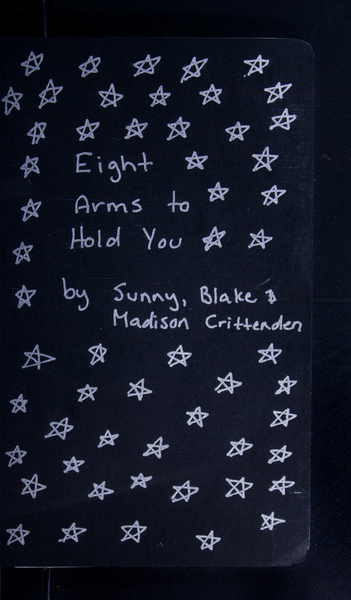 Eight
Arms to
Hold You
by Sunny, Blake &
Madison Crittenden